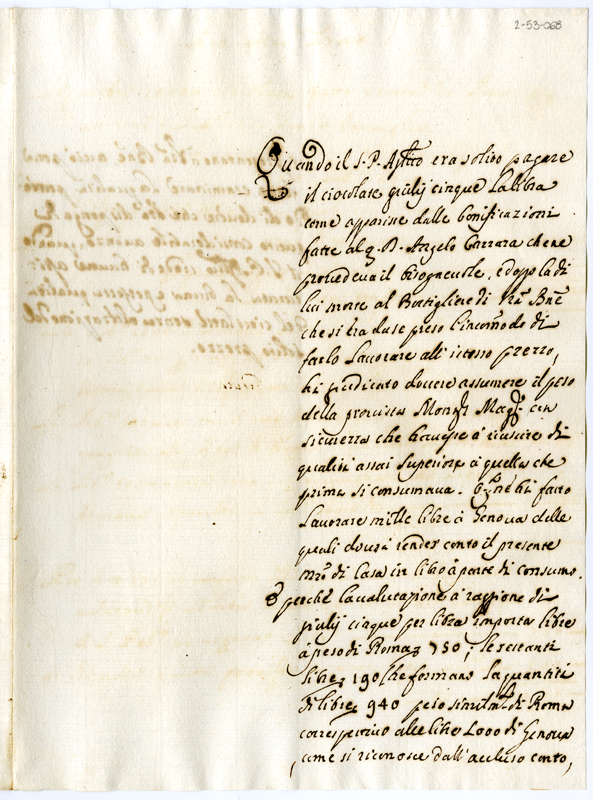 2-53-068
Quando il S. P. Apstco era solito pagare
il ciocolate giulij cinque la libra
come apparisce dalle bonificazioni
fatte al q. D. Angelo Carrara che ne
provedeva il bisognevole, e dopo la di
lui morte al Bottigliere di
che si tra da se preso l'incomodo di
farlo lavorare all' istesso prezzo,
hà giudicato dovere assumere il peso
della provista Monsr. Magd. con
sicurezza che havesse à riuscire di
qualità assai superiore à quella che
prima si consumava. hà fatto
lavorare mille libre à Genova delle
quali dovrà render conto il presente
Mro. di Casa in libro à parte di consumo.
E perche la valutazione à raggione di
giulij cinque per libra importa libre
à peso di Roma 750; le restanti
libre 190 che formano la quantità
di libre 940 peso similmte. di Roma
correspettivo alle libre 1000 di Genova
come si riconosce dall' accluso conto,